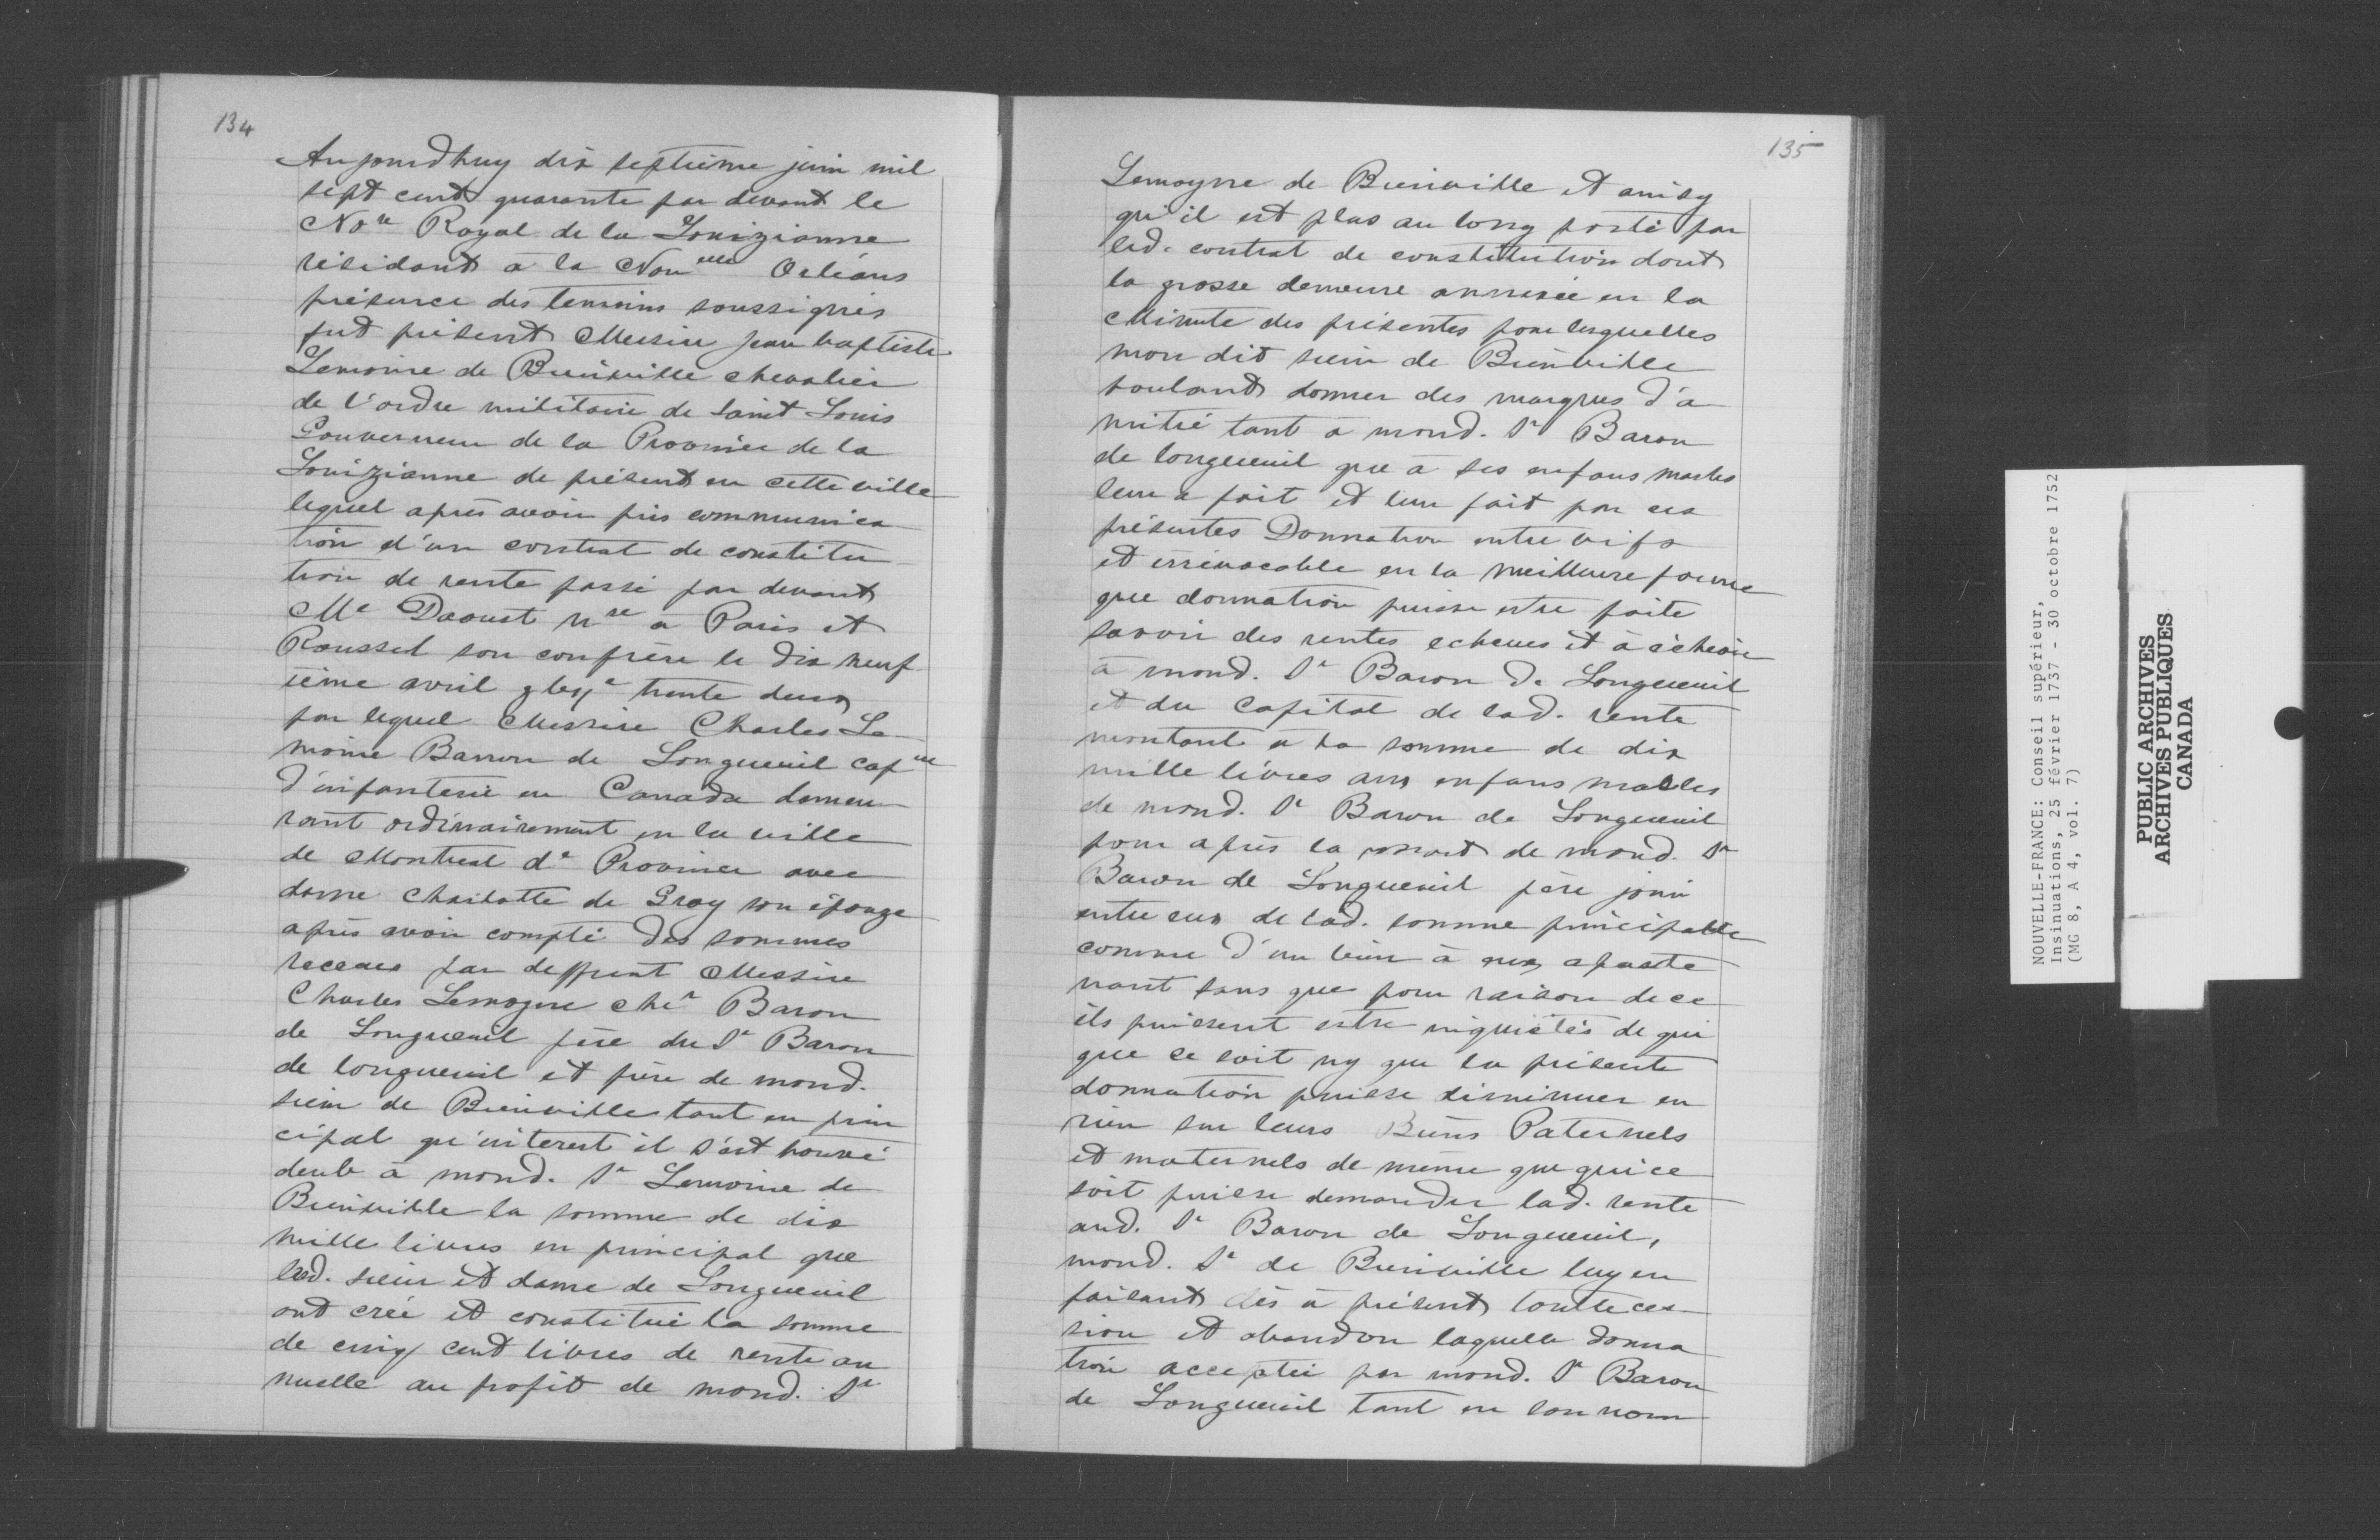 134
Aujourdhuy dix septieme juin mil
sept cent quarante par devant le
Nore Royal de la Louizianne
résidant à la Nouelle Orléans
présence des temoins soussignés
fut présent Messire Jean baptiste
Lemoine de Bienville chevalier
de l'ordre militaire de Saint Louis
Gouverneur de la Province de la
Louizianne de présent en cette ville
lequel après avoir pris communica
tion d'un contrat de constitu
tion de rente passé par devant
Me Daoust nre à Paris et
Roussel son confrère le dix neuf
ième avril trente deux
par lequel Messire Charles Le
moine Barron de Longueuil capne
d'infanterie en Canada demeu
rant ordinairement en la ville
de Montreal de Province avec
dame Charlotte de Gray son épouze
après avoir compté des sommes
receues par deffunt Messire
Charles Lemoyne cher Baron
de Longueuil père du Sr Baron
de longueuil et frère de mond.
sieur de Bienville tant en prin
cipal qu'interest il s'est trouvé
deub à mond. Sr Lemoine de
Bienville la somme de dix
mille livres en principal que
led. sieur et dame de Longueuil
ont créé et constitué la somme
de cinq cent livres de rente an
nuelle au profit de mond. Sr
135
Lemoyne de Bienville et ainsy
qu'il est plus au long porté par
led. contrat de constitution dont
la grosse demeure annexée en la
Minute des présentes pour lesquelles
mon dit sieur de Bienville
voulant donner des marques d'a
mitié tant à mond. Sr Baron
de longueuil que à ses enfans masles
leur a fait et leur fait par ces
présentes Donnation entre vifs
et irrévocable en la meilleure forme
que donnation puisse estre faite
savoir des rentes echeues et à écheoir
à mond. Sr Baron de Longueuil
et du Capital de lad. rente
montant à la somme de dix
mille livres aux enfans malles
de mond. Sr Baron de Longueuil
pour après la mort de mond. Sr
Baron de Longueuil père jouir
entre eux de lad. somme principalle
comme d'un bien à eux aparte
nant sans que pour raison de ce
ils puissent estre inquiétés de qui
que ce soit ny que la présente
donnation puisse diminuer en
rien sur leurs Biens Paternels
et maternels de même que qui ce
soit puisse demander lad. rente
aud. Sr Baron de Longueuil,
mond. Sr de Bienville luy en
faisant dès à présent toutte ces
sion et abandon laquelle donna
tion acceptée par mond. Sr Baron
de Longueuil tant en son nom
NOUVELLE-FRANCE: Conseil supérieur,
Insinuations, 25 février 1737 - 30 octobre 1752
(MG 8, A 4, vol. 7)
PUBLIC ARCHIVES
ARCHIVES PUBLIQUES
CANADA